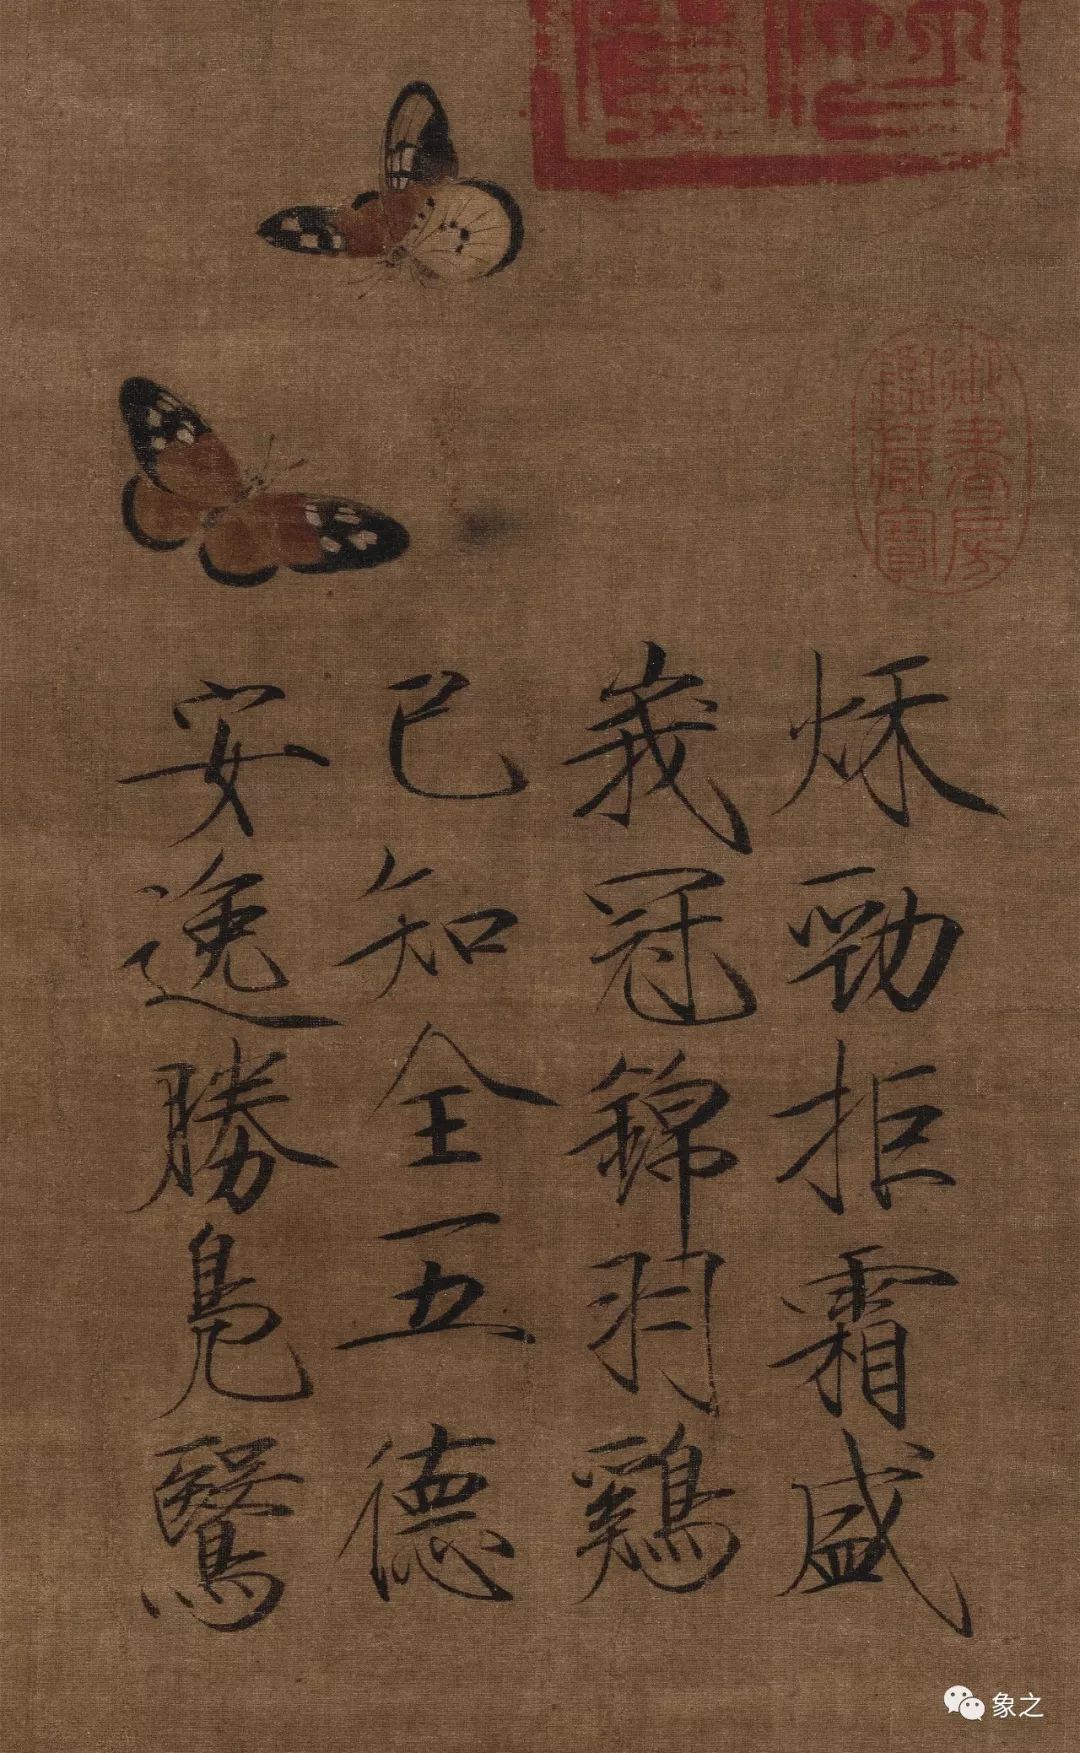 御書房
鑑藏寶
秌勁拒霜盛
峩冠錦羽鷄
已知全五德
安逸勝鳧鷖
象之